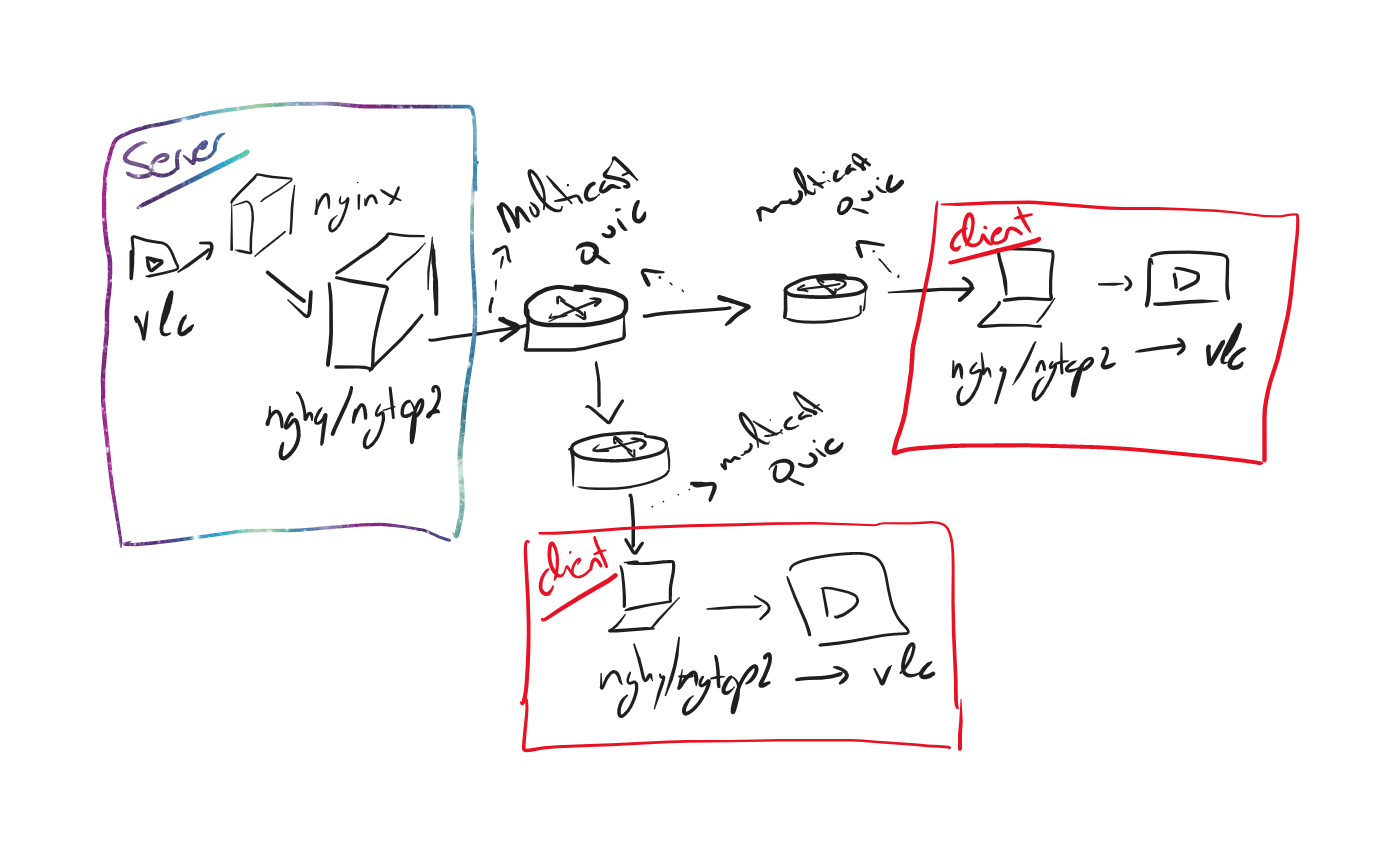 Server
nginx
vlc
nghq/ngtcp2
Multicast
Quic
multicast
Quic
client
nghq/ngtcp2 → vlc
multicast
Quic
client
nghq/ngtcp2 → vlc